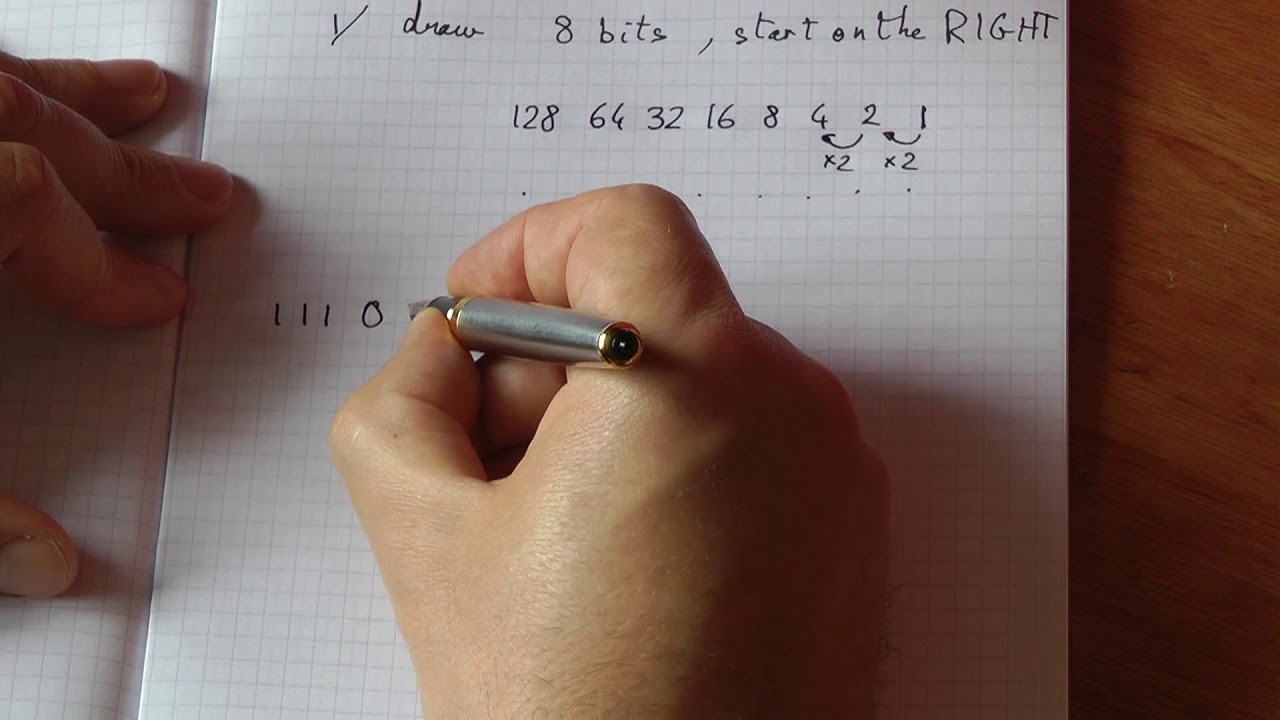 1/ draw 8 bits, start on the RIGHT
128 64 32 16 8 4 2 1
×2 ×2
111 0